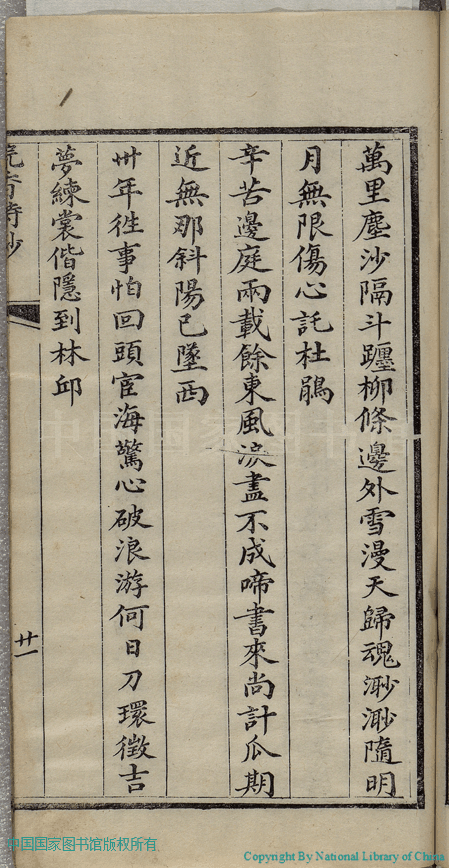 萬里塵沙隔斗躔柳條邊外雪漫天歸魂渺渺隨明
月無限傷心託杜鵑
辛苦邊庭兩載餘東風淚盡不成啼書來尚計瓜期
近無那斜陽已墜西
卅年徃事怕回頭宦海驚心破浪游何日刀環徵吉
夢練裳偕隱到林邱
香詩鈔
廿一
中国国家图书馆版权所有
Copyright By National Library of China